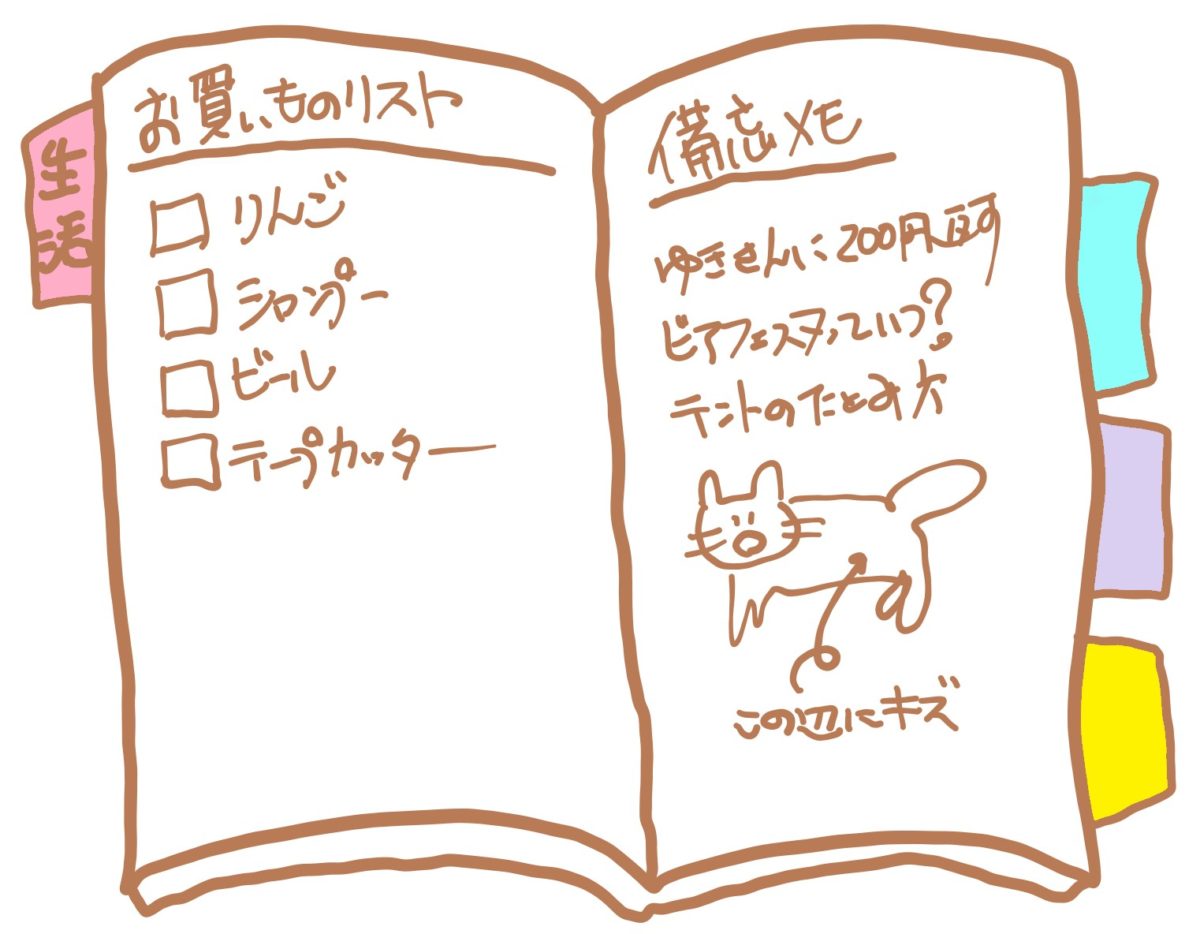 生活
お買いものリスト
りんご
シャンプー
ビール
テープカッター
備忘メモ
ゆきさんに200円返す
ビアフェスタっていつ?
テントのたたみ方
この辺にキズ